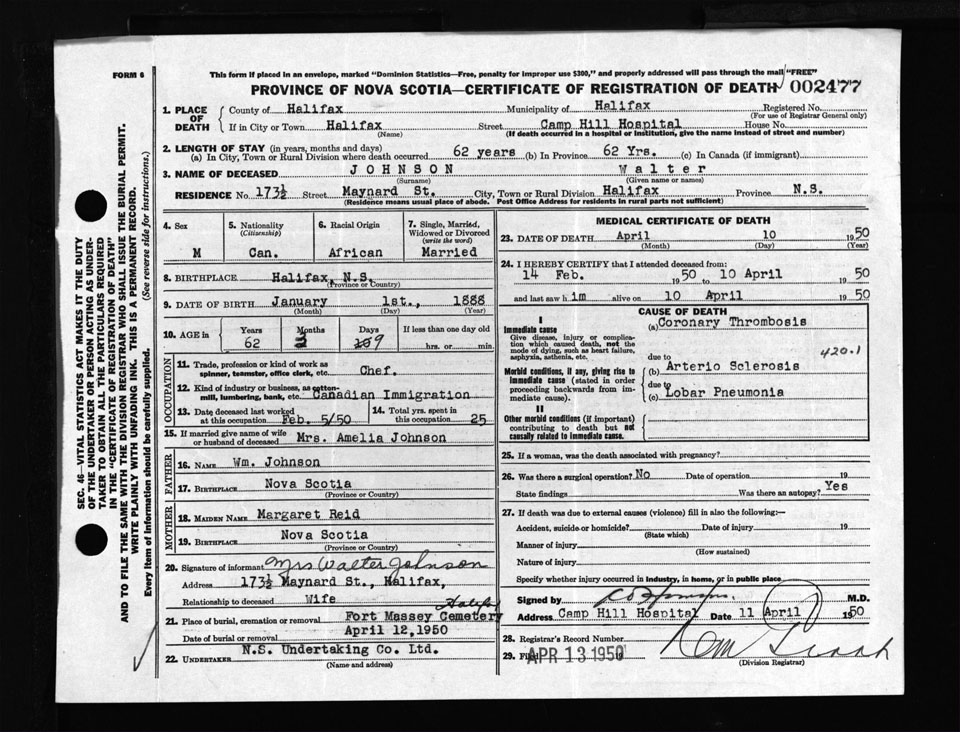 FORM 6
This form if placed in an envelope, marked "Dominion Statistics—Free, penalty for improper use $300," and properly addressed will pass through the mail "FREE"
PROVINCE OF NOVA SCOTIA—CERTIFICATE OF REGISTRATION OF DEATH 002477
1. PLACE OF DEATH
County of Halifax Municipality of Halifax Registered No.
(For use of Registrar General only)
If in City or Town Halifax Street Camp Hill Hospital House No.
(Name) (If death occurred in a hospital or institution, give the name instead of street and number)
2. LENGTH OF STAY (in years, months and days)
(a) In City, Town or Rural Division where death occurred 62 years (b) In Province 62 Yrs. (c) In Canada (if immigrant)
3. NAME OF DECEASED JOHNSON Walter
(Surname) (Given name or names)
RESIDENCE No. 173½ Street Maynard St. City, Town or Rural Division Halifax Province N.S.
(Residence means usual place of abode. Post Office Address for residents in rural parts not sufficient)
4. Sex
M
5. Nationality
(Citizenship)
Can.
6. Racial Origin
African
7. Single, Married, Widowed or Divorced
(write the word)
Married
8. BIRTHPLACE Halifax, N.S.
(Province or Country)
9. DATE OF BIRTH January 1st., 1888
(Month) (Day) (Year)
10. AGE in Years Months Days If less than one day old
62 3 9 hrs. or min.
OCCUPATION
11. Trade, profession or kind of work as
spinner, teamster, office clerk, etc. Chef.
12. Kind of industry or business, as cotton-
mill, lumbering, bank, etc. Canadian Immigration
13. Date deceased last worked
at this occupation Feb. 5/50
14. Total yrs. spent in
this occupation 25
15. If married give name of wife
or husband of deceased Mrs. Amelia Johnson
FATHER
16. NAME Wm. Johnson
17. BIRTHPLACE Nova Scotia
(Province or Country)
MOTHER
18. MAIDEN NAME Margaret Reid
19. BIRTHPLACE Nova Scotia
(Province or Country)
20. Signature of informant Mrs Walter Johnson
Address 173½ Maynard St., Halifax,
Relationship to deceased Wife
21. Place of burial, cremation or removal Fort Massey Cemetery Halifax
Date of burial or removal April 12, 1950
22. UNDERTAKER N.S. Undertaking Co. Ltd.
(Name and address)
MEDICAL CERTIFICATE OF DEATH
23. DATE OF DEATH April 10 1950
(Month) (Day) (Year)
24. I HEREBY CERTIFY that I attended deceased from:
14 Feb. 1950 to 10 April 1950
and last saw him alive on 10 April 1950
CAUSE OF DEATH
I
Immediate cause
Give disease, injury or complica-
tion which caused death, not the
mode of dying, such as heart failure,
asphyxia, asthenia, etc.
(a) Coronary Thrombosis
420.1
Morbid conditions, if any, giving rise to
immediate cause (stated in order
proceeding backwards from im-
mediate cause).
due to
(b) Arterio Sclerosis
due to
(c) Lobar Pneumonia
II
Other morbid conditions (if important)
contributing to death but not
causally related to immediate cause.
25. If a woman, was the death associated with pregnancy?
26. Was there a surgical operation? No Date of operation 19
State findings Was there an autopsy? Yes
27. If death was due to external causes (violence) fill in also the following:—
Accident, suicide or homicide? Date of injury 19
(State which)
Manner of injury
(How sustained)
Nature of injury
Specify whether injury occurred in industry, in home, or in public place
Signed by M.D.
Address Camp Hill Hospital Date 11 April 1950
28. Registrar's Record Number
29. Filed APR 13 1950 19
(Division Registrar)
SEC. 46—VITAL STATISTICS ACT MAKES IT THE DUTY
OF THE UNDERTAKER OR PERSON ACTING AS UNDER-
TAKER TO OBTAIN ALL THE PARTICULARS REQUIRED
IN THE "CERTIFICATE OF REGISTRATION OF DEATH"
AND TO FILE THE SAME WITH THE DIVISION REGISTRAR WHO SHALL ISSUE THE BURIAL PERMIT.
WRITE PLAINLY WITH UNFADING INK. THIS IS A PERMANENT RECORD.
Every item of information should be carefully supplied. (See reverse side for instructions.)